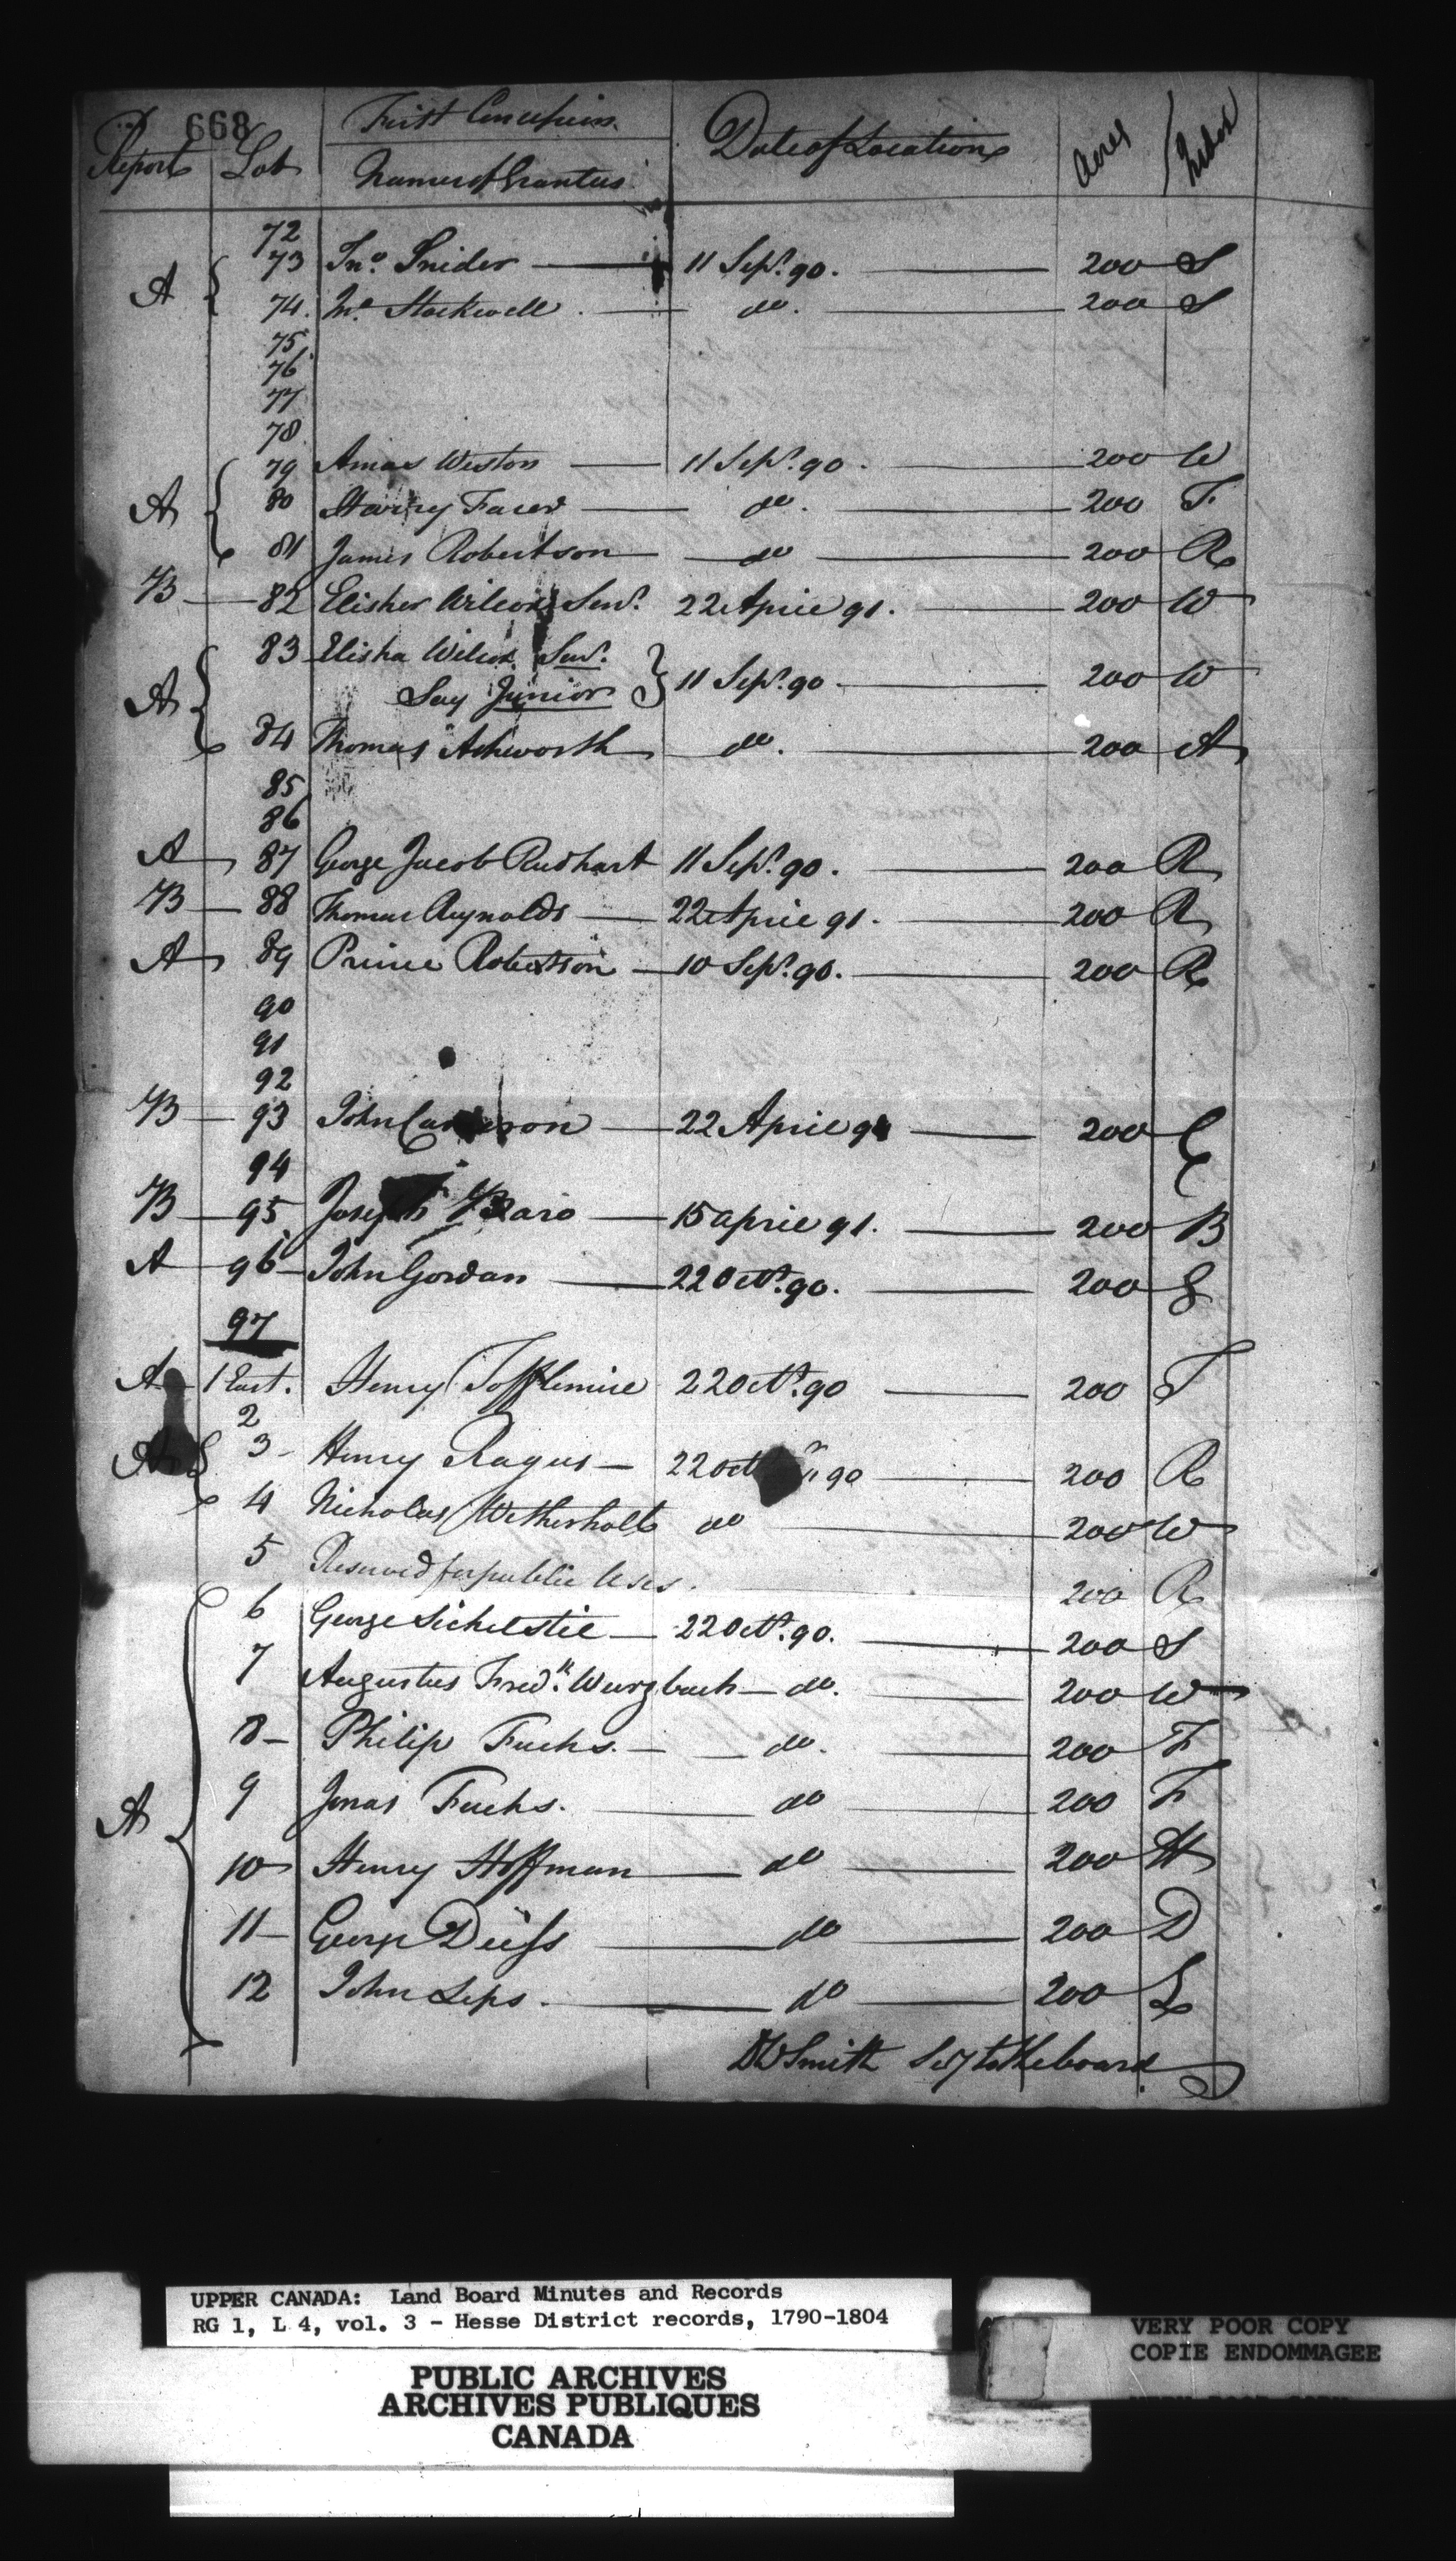 668
First Concession
Report Lot Names of Grantees Date of Location Acres Index
72
A 73 Jno. Snider 11 Sepr. 90. 200 S
74. Stockwell. do. 200 S
75
76
77
78
79 Amas Weston 11 Sepr. 90. 200 W
A 80 Harry Facer do. 200 F
81 James Robertson do 200 R
B 82 Elisher Wilcox Senr. 22 April 91. 200 W
83 Elisha Wilcox Senr.
A Say Junior 11 Sepr. 90 200 W
84 Thomas Ashworth do. 200 A
85
86
A 87 George Jacob Rudhart 11 Sepr. 90. 200 R
B 88 Thomas Reynolds 22 April 91. 200 R
A 89 Prince Robertson 10 Sepr. 90. 200 R
90
91
92
B 93 John Cameron 22 April 91 200 C
94
B 95 Joseph Baro 15 April 91. 200 B
A 96 John Gordan 22 Octr. 90. 200 G
97
A 1 East. Henry Tofflemire 22 Octr. 90 200 T
2
A 3 Henry Ragus 22 Octr " 90 200 R
4 Nicholas Wetherholt do 200 W
5 Reserved for public Uses. 200 R
6 George Sichelstiel 22 Octr. 90. 200 S
7 Augustus Fredk. Wurzbach do. 200 W
8 Philip Fuchs. do. 200 F
A 9 Jonas Fuchs. do 200 F
10 Henry Hoffman do 200 H
11 George Deiss do 200 D
12 John Leps. do 200 L
DW Smith Secy to the board
UPPER CANADA: Land Board Minutes and Records
RG 1, L 4, vol. 3 - Hesse District records, 1790-1804
VERY POOR COPY
COPIE ENDOMMAGEE
PUBLIC ARCHIVES
ARCHIVES PUBLIQUES
CANADA